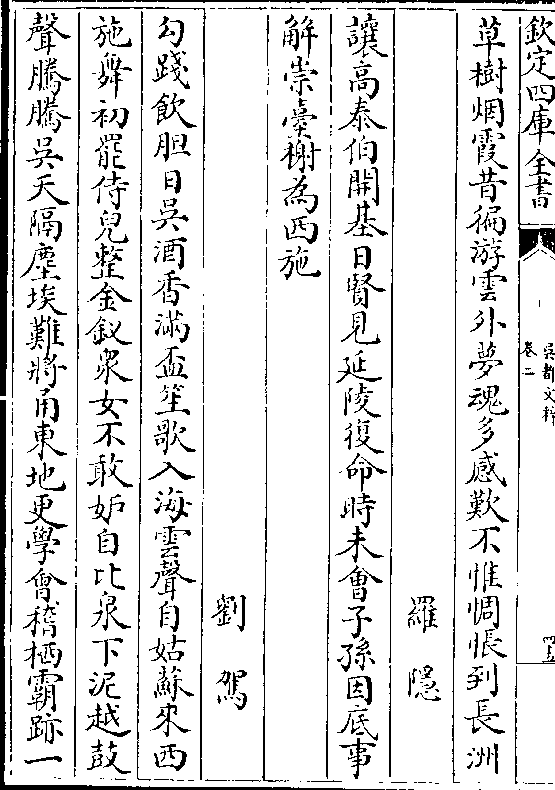 欽定四庫全書
吳都文粹
卷二
四五
草樹烟霞昔徧游雲外夢魂多感歎不惟惆悵到長洲
羅隱
讓高泰伯開基日賢見延陵復命時未會子孫因底事
解崇臺榭為西施
劉駕
勾踐飲胆日吳酒香滿盃笙歌入海雲聲自姑蘇來西
施舞初罷侍兒整金釵衆女不敢妒自比泉下泥越鼓
聲騰騰吳天隔塵埃難將甬東地更學會稽栖霸跡一